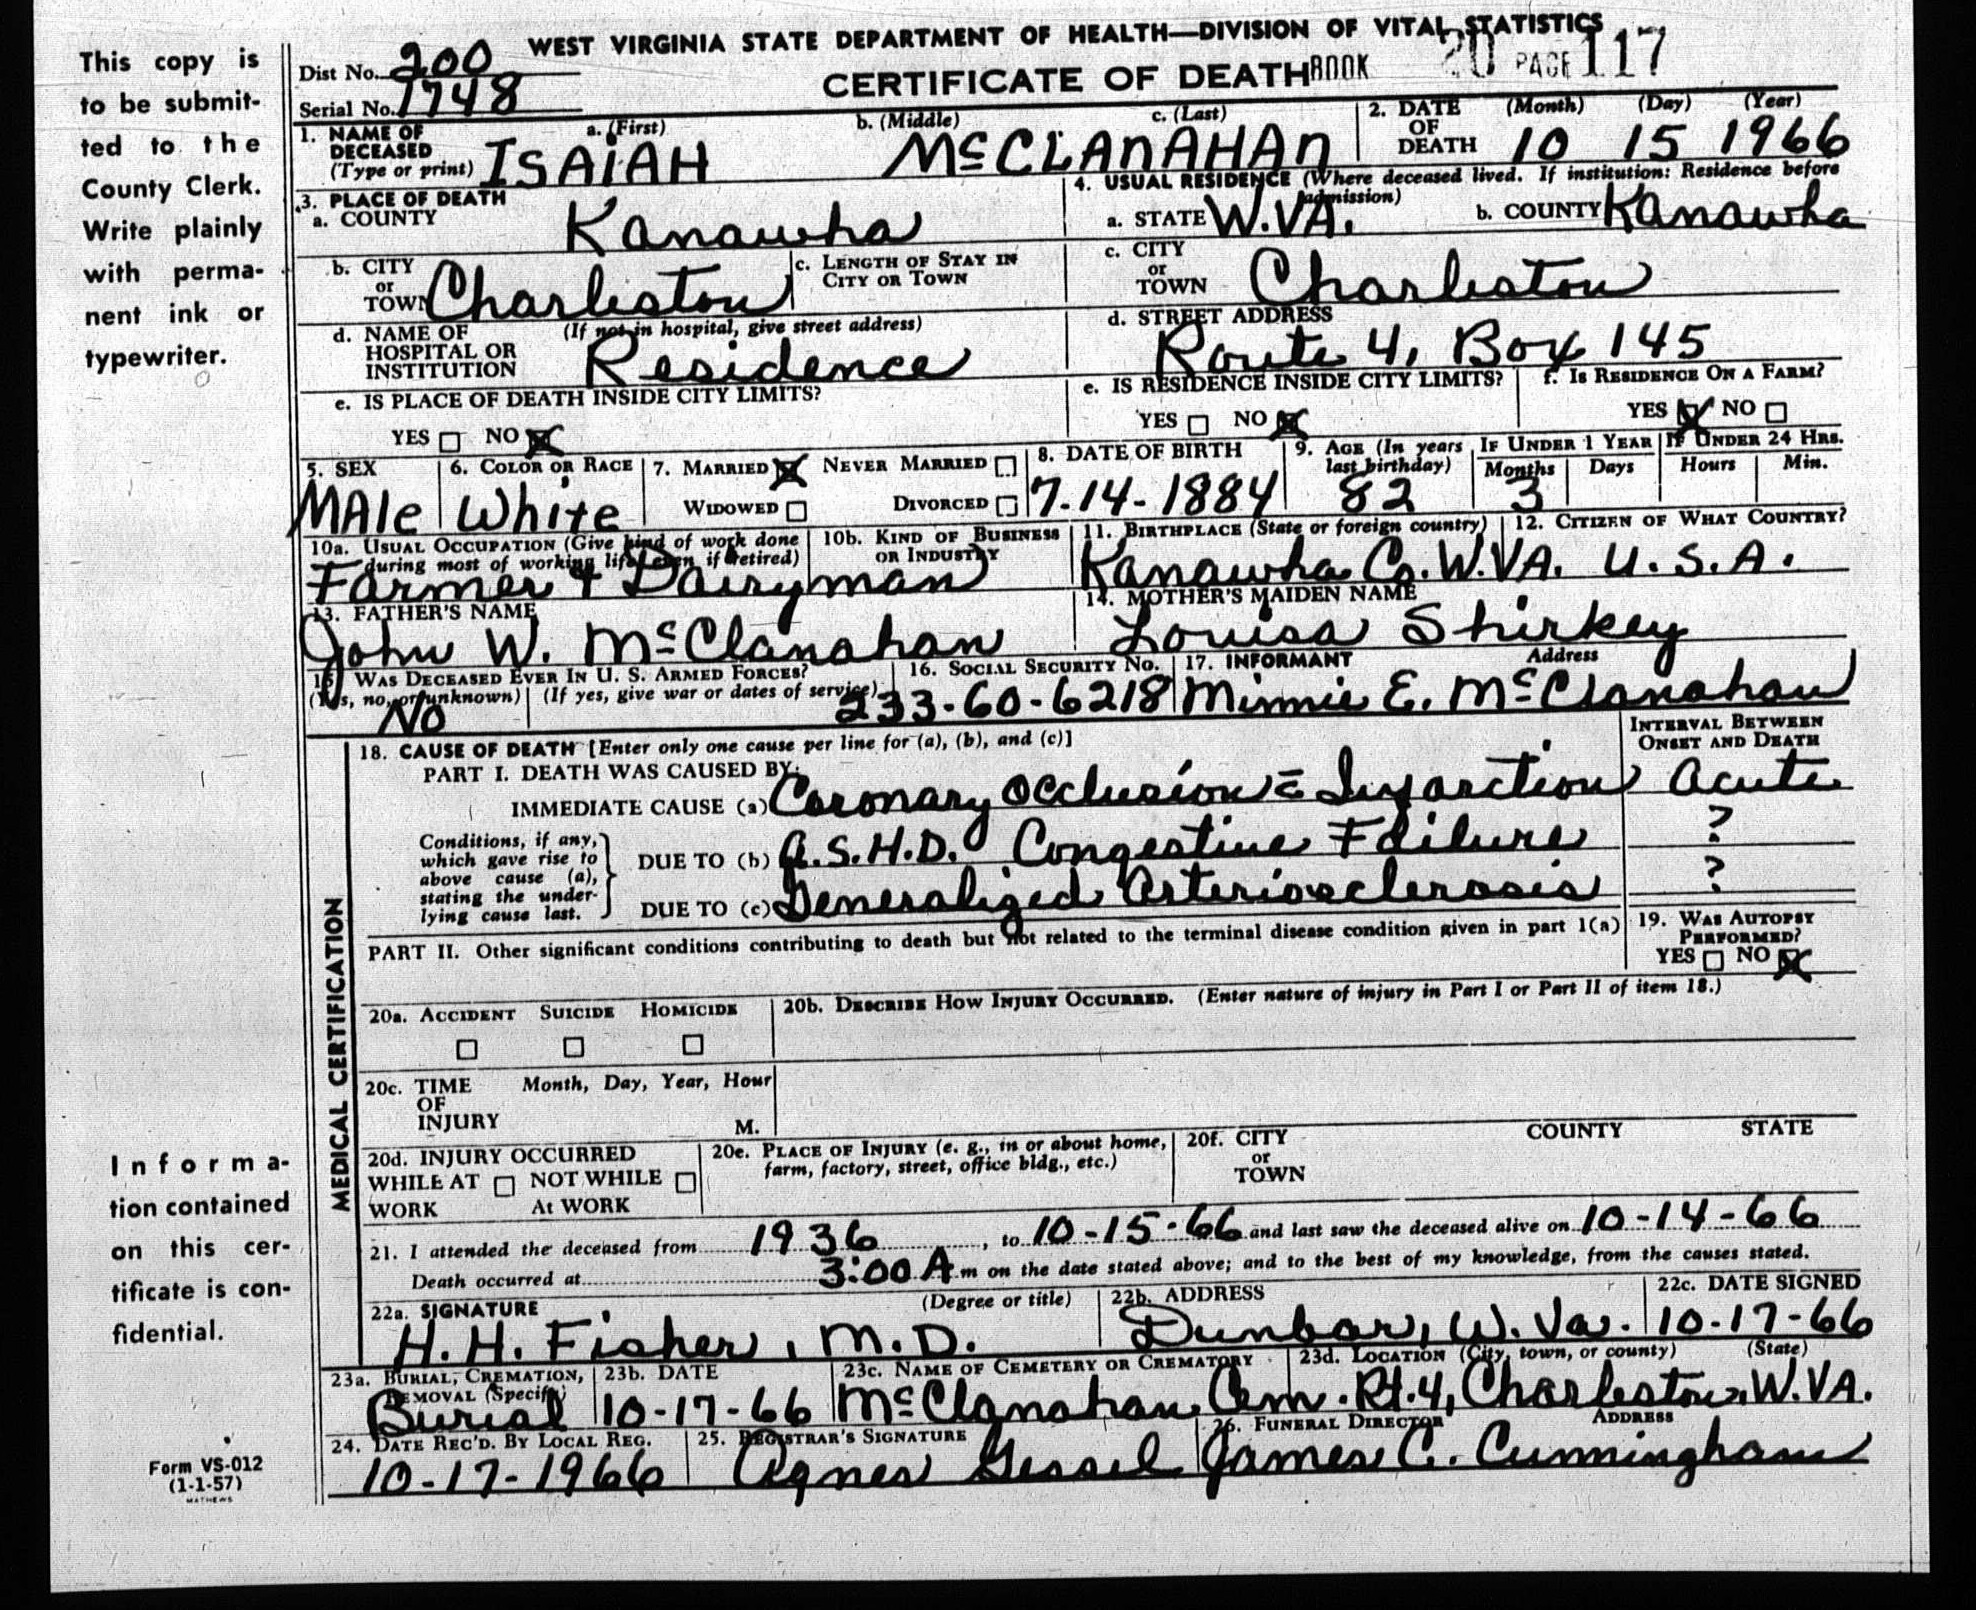 WEST VIRGINIA STATE DEPARTMENT OF HEALTH—DIVISION OF VITAL STATISTICS
CERTIFICATE OF DEATH BOOK 20 PAGE 117
This copy is
to be submit-
ted to the
County Clerk.
Write plainly
with perma-
nent ink or
typewriter.
Dist No. 200
Serial No. 1748
1. NAME OF DECEASED (Type or print) a. (First) b. (Middle) c. (Last)
ISAIAH McCLANAHAN
2. DATE OF DEATH (Month) (Day) (Year)
10 15 1966
3. PLACE OF DEATH
a. COUNTY Kanawha
4. USUAL RESIDENCE (Where deceased lived. If institution: Residence before admission)
a. STATE W.VA. b. COUNTY Kanawha
b. CITY or TOWN Charleston
c. LENGTH OF STAY IN CITY OR TOWN
c. CITY or TOWN Charleston
d. NAME OF HOSPITAL OR INSTITUTION (If not in hospital, give street address)
Residence
d. STREET ADDRESS
Route 4, Box 145
e. IS PLACE OF DEATH INSIDE CITY LIMITS?
YES NO
e. IS RESIDENCE INSIDE CITY LIMITS?
YES NO
f. IS RESIDENCE ON A FARM?
YES NO
5. SEX
MAle
6. COLOR OR RACE
White
7. MARRIED NEVER MARRIED
WIDOWED DIVORCED
8. DATE OF BIRTH
7-14-1884
9. AGE (In years last birthday)
82
IF UNDER 1 YEAR
Months Days
3
IF UNDER 24 HRS.
Hours Min.
10a. USUAL OCCUPATION (Give kind of work done during most of working life, even if retired)
Farmer & Dairyman
10b. KIND OF BUSINESS OR INDUSTRY
11. BIRTHPLACE (State or foreign country)
Kanawha Co. W.VA.
12. CITIZEN OF WHAT COUNTRY?
U.S.A.
13. FATHER'S NAME
John W. McClanahan
14. MOTHER'S MAIDEN NAME
Louisa Shirkey
15. WAS DECEASED EVER IN U. S. ARMED FORCES?
(Yes, no, or unknown) (If yes, give war or dates of service)
NO
16. SOCIAL SECURITY NO.
233-60-6218
17. INFORMANT Address
Minnie E. McClanahan
MEDICAL CERTIFICATION
18. CAUSE OF DEATH [Enter only one cause per line for (a), (b), and (c)]
INTERVAL BETWEEN ONSET AND DEATH
PART I. DEATH WAS CAUSED BY:
IMMEDIATE CAUSE (a) Coronary Occlusion c̄ Infarction Acute
Conditions, if any,
which gave rise to
above cause (a),
stating the under-
lying cause last.
DUE TO (b) A.S.H.D. Congestive Failure ?
DUE TO (c) Generalized Arteriosclerosis ?
PART II. Other significant conditions contributing to death but not related to the terminal disease condition given in part 1(a)
19. WAS AUTOPSY PERFORMED?
YES NO
20a. ACCIDENT SUICIDE HOMICIDE
20b. DESCRIBE HOW INJURY OCCURRED. (Enter nature of injury in Part I or Part II of item 18.)
20c. TIME OF INJURY Month, Day, Year, Hour
M.
20d. INJURY OCCURRED
WHILE AT WORK NOT WHILE At WORK
20e. PLACE OF INJURY (e. g., in or about home, farm, factory, street, office bldg., etc.)
20f. CITY or TOWN COUNTY STATE
Informa-
tion contained
on this cer-
tificate is con-
fidential.
21. I attended the deceased from 1936, to 10-15-66 and last saw the deceased alive on 10-14-66
Death occurred at 3:00 A m on the date stated above; and to the best of my knowledge, from the causes stated.
22a. SIGNATURE (Degree or title)
H. H. Fisher, M.D.
22b. ADDRESS
Dunbar, W. Va.
22c. DATE SIGNED
10-17-66
23a. BURIAL, CREMATION, REMOVAL (Specify)
Burial
23b. DATE
10-17-66
23c. NAME OF CEMETERY OR CREMATORY
McClanahan Cem.
23d. LOCATION (City, town, or county) (State)
Rt. 4, Charleston, W.VA.
24. DATE REC'D. BY LOCAL REG.
10-17-1966
25. REGISTRAR'S SIGNATURE
Agnes Gessel
26. FUNERAL DIRECTOR ADDRESS
James C. Cunningham
Form VS-012
(1-1-57)
MATHEWS